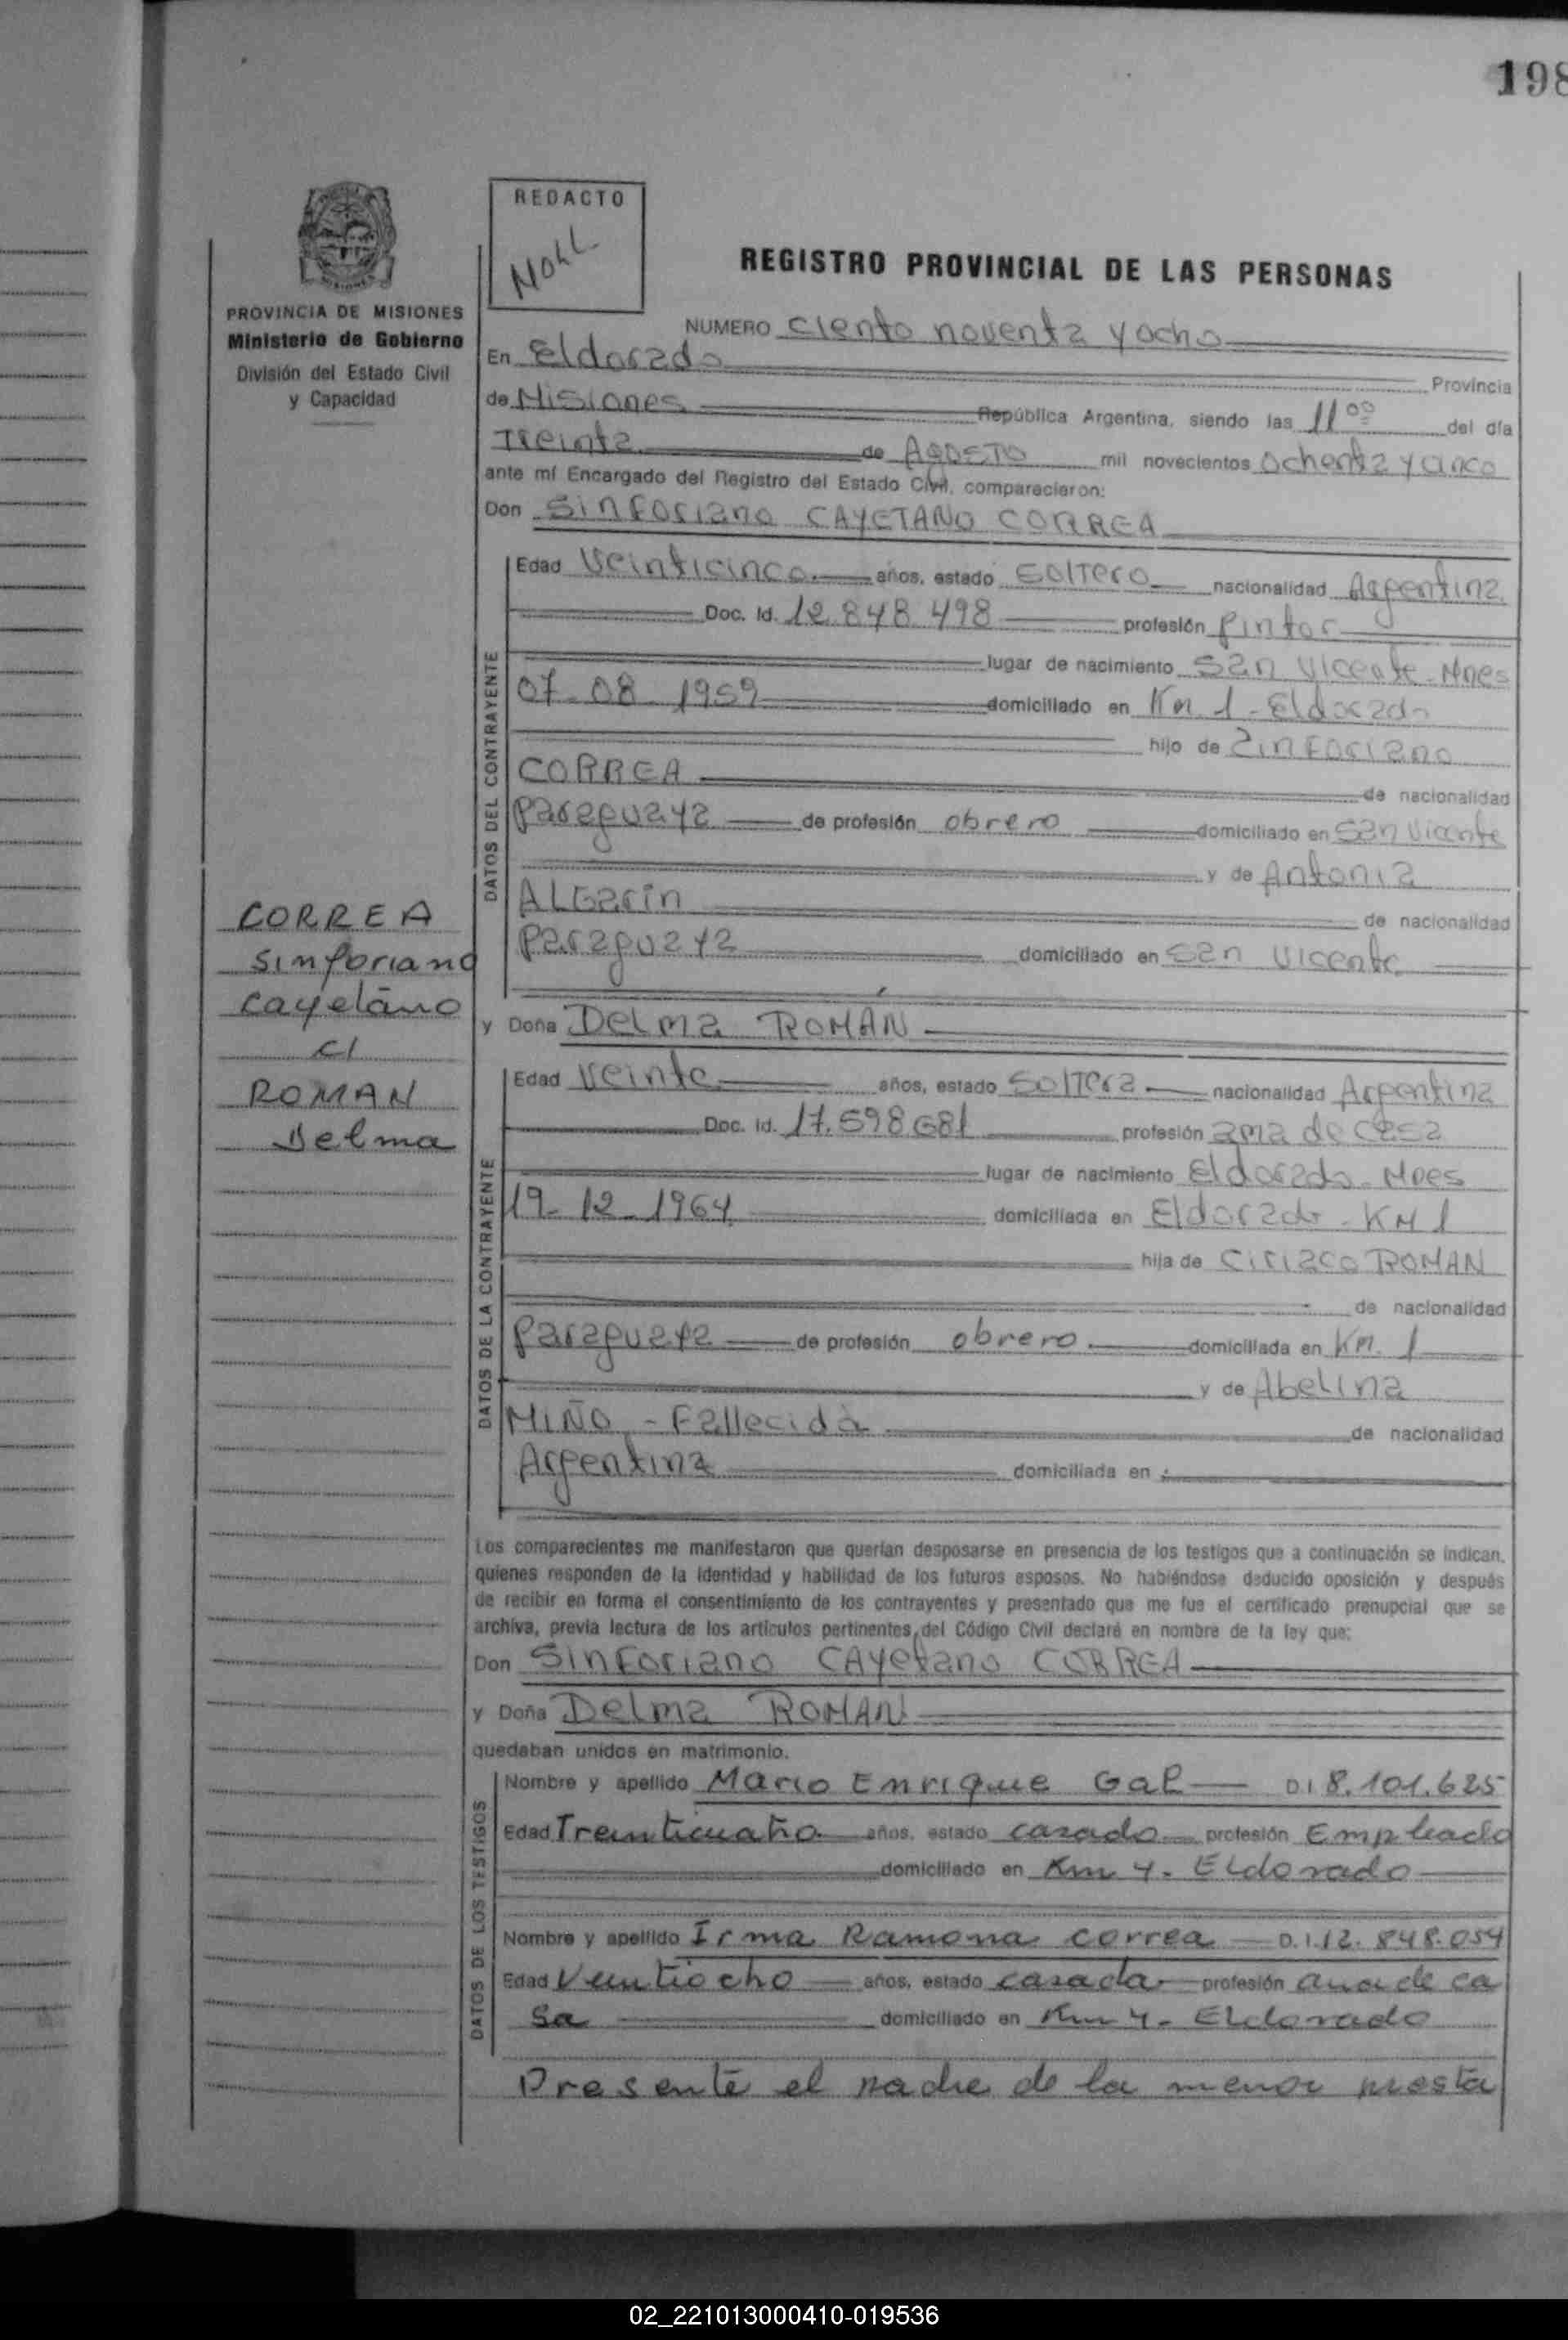 198
REDACTO
NOLL
REGISTRO PROVINCIAL DE LAS PERSONAS
PROVINCIA DE MISIONES
Ministerio de Gobierno
División del Estado Civil
y Capacidad
NUMERO Ciento noventa y ocho
En Eldorado Provincia
de Misiones República Argentina, siendo las 11 00 del día
Treinta de AGOSTO mil novecientos ochenta y cinco
ante mí Encargado del Registro del Estado Civil, comparecieron:
Don Sinforiano CAYETANO CORREA
DATOS DEL CONTRAYENTE
Edad Veinticinco años, estado SOlTero nacionalidad Argentina
Doc. Id. 12.848 498 profesión Pintor
lugar de nacimiento San Vicente - Mnes
07-08-1959 domiciliado en Km 1 - Eldorado
hijo de Zinforiano
CORREA de nacionalidad
Paraguaya de profesión obrero domiciliado en San Vicente
y de Antonia
ALGarin de nacionalidad
Paraguaya domiciliado en San Vicente
CORREA
Sinforiano
Cayetano
c/
ROMAN
Delma
y Doña Delma ROMÁN
DATOS DE LA CONTRAYENTE
Edad Veinte años, estado SOlTera nacionalidad Argentina
Doc. Id. 17.598.681 profesión ama de casa
lugar de nacimiento Eldorado - Mnes
19-12-1964 domiciliada en Eldorado - KM 1
hija de Ciriaco ROMAN
de nacionalidad
Paraguaya de profesión obrero domiciliada en Km. 1
y de Abelina
MIÑO - Fallecida de nacionalidad
Argentina domiciliada en :
Los comparecientes me manifestaron que querían desposarse en presencia de los testigos que a continuación se indican,
quienes responden de la identidad y habilidad de los futuros esposos. No habiéndose deducido oposición y después
de recibir en forma el consentimiento de los contrayentes y presentado que me fue el certificado prenupcial que se
archiva, previa lectura de los artículos pertinentes del Código Civil declaré en nombre de la ley que:
Don Sinforiano CAYetano CORREA
y Doña Delma ROMAN
quedaban unidos en matrimonio.
DATOS DE LOS TESTIGOS
Nombre y apellido Mario Enrique Gal D.I 8.101.625
Edad Treinticuatro años, estado casado profesión Empleado
domiciliado en Km 4. Eldorado
Nombre y apellido Irma Ramona Correa D.I.12.848.054
Edad Veintiocho años, estado casada profesión ama de ca
sa domiciliado en Km 4. Eldorado
Presente el padre de la menor presta
02_221013000410-019536